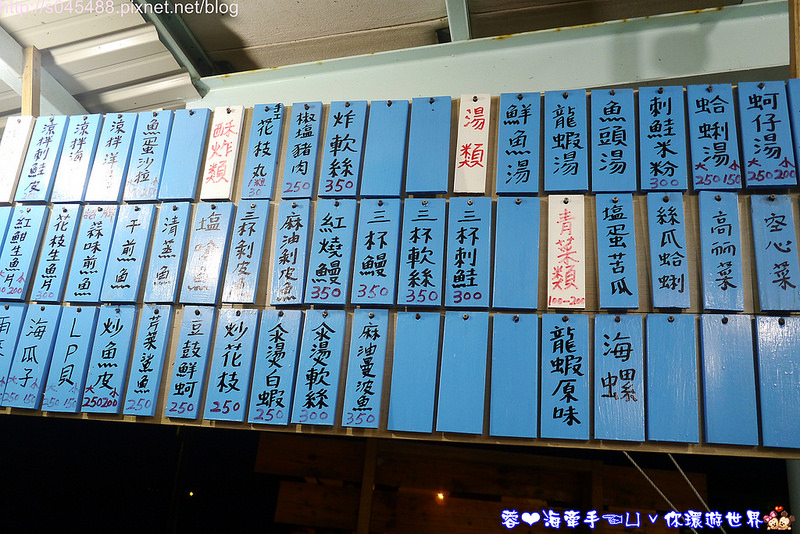 http://3045488.pixnet.net/blog
涼拌剝鮭皮
涼拌海
涼拌洋
魚蛋沙拉
酥炸類
手工花枝丸
1顆30
椒塩豬肉
250
炸軟絲
350
湯類
鮮魚湯
龍蝦湯
魚頭湯
刺鮭米粉
300
蛤蜊湯
大小
250 150
蚵仔湯
大小
250 200
紅魽生魚片
花枝生魚片
300
蒜味煎魚
干煎魚
清蒸魚
塩
魚
三杯剝皮魚
麻油剝皮魚
紅燒鰻
350
三杯鰻
350
三杯軟絲
350
三杯刺鮭
300
青菜類
100-200
塩蛋苦瓜
絲瓜蛤蜊
高麗菜
空心菜
海瓜子
大小
250 150
LP貝
大小
250 150
炒魚皮
大小
250 200
芹菜鯊魚
250
豆鼓鮮蚵
250
炒花枝
250
汆燙白蝦
250
汆燙軟絲
300
麻油曼波魚
350
龍蝦原味
海螺
蓉❤海牽手☜凵ˇ依環遊世界